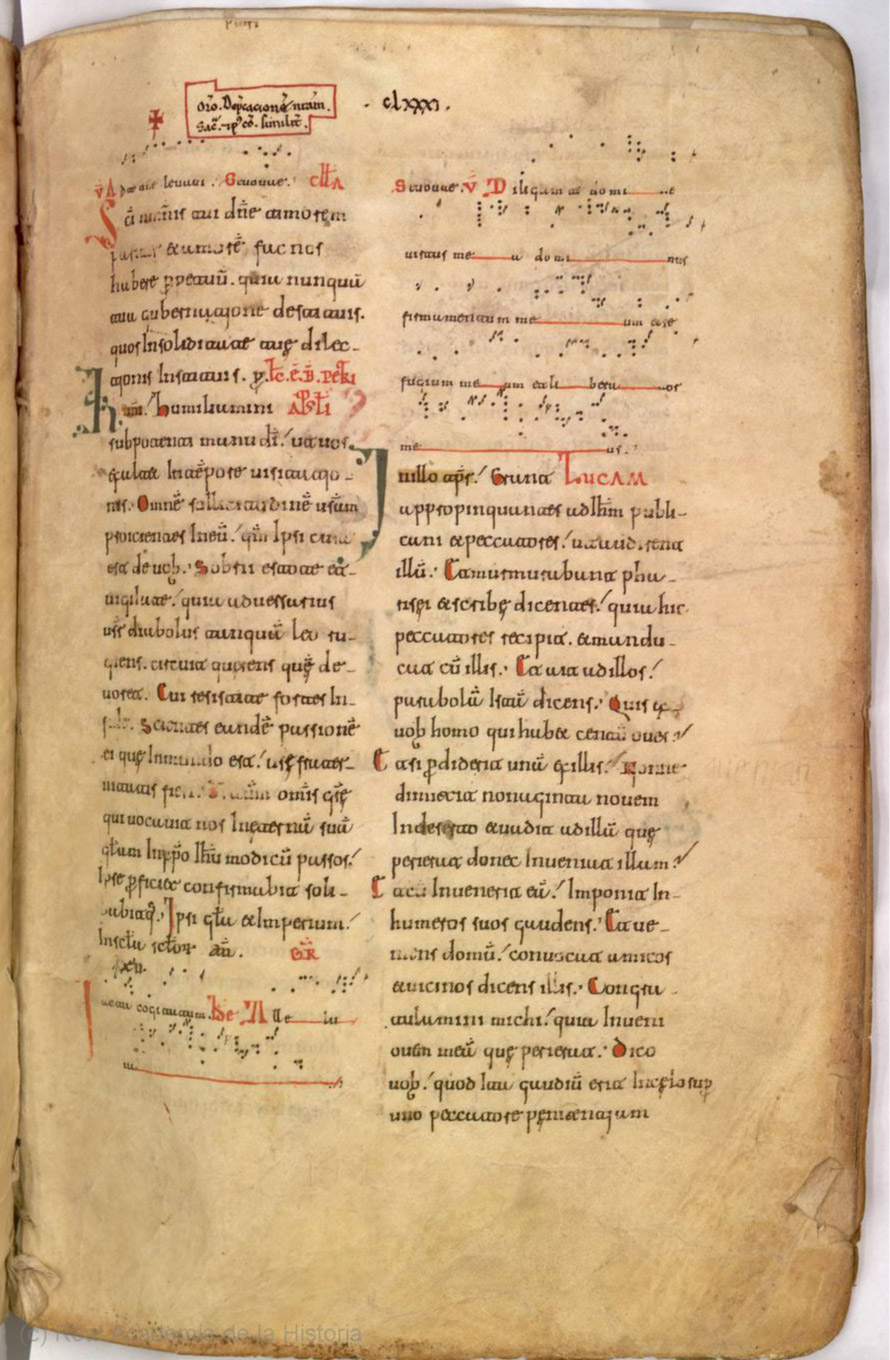 Oro. Dep̄cacionē nr̄am.
Sac̄. similit̄.
. clxxxi .
Seruoue. c̄ll̄a
S c̄i nom̄is tui dn̄e timorem
pariter & amorē fac nos
habere ppetuū. quia nunquā
tua gubernatione destituis.
quos In soliditate tuę dilec-
tionis Instituis. l̄c. ep̄. b̄. pet̄ri
k m̄. humiliamini ap̄l̄i
sub potenti manu dī. ut uos
exaltet In tēpore uisitatio-
nis. Omnē sollicitudinē ur̄am
proicientes In eū. qm̄ Ipsi cura
est de uob. Sobrii estote &
uigilate. quia aduersarius
ur̄ diabolus tanquā leo ru-
giens. circuit querens quē de-
uoret. Cui resistite fortes In
fide. Scientes eandē passionē
ei que In mundo est. ur̄ę frater-
nitatis fieri. D̄s autm̄ omis grę
qui uocauit nos In eternā suā
glam In xp̄o Ihū modicū passos.
Ipse pficiet confirmabit soli-
dabitq;. Ipsi gla & Imperium.
In scla sclor am̄. GR̄
Iacta cogitatum. Alle lu
ia
Seruoue. V̄ Diligam te domi ne
uirtus me a domi nus
firmamentum me um et re
fugium me um et li bera tor
me us.
I n illo tp̄r. Erant LUCAM
appropinquantes ad Ihm̄ publi-
cani & peccatores. ut audirent
illū. Et murmurabant pha-
risei & scribę dicentes. quia hic
peccatores recipit. & mandu-
cat cū illis. Et ait ad illos.
parabolā Istā dicens. Quis ex
uob homo qui habet centū oues.
Et si pdiderit unā ex illis. Nonne
dimittit nonaginta nouem
In deserto & uadit ad illā que
perierat donec Inueniat illam.
Et cū Inuenerit eā. Imponit In
humeros suos gaudens. Et ue-
niens domū. conuocat amicos
& uicinos dicens illis. Congra-
tulamini michi. quia Inueni
ouem meā que perierat. Dico
uob. quod Ita gaudiū erit In celo sup
uno peccatore penitentiam